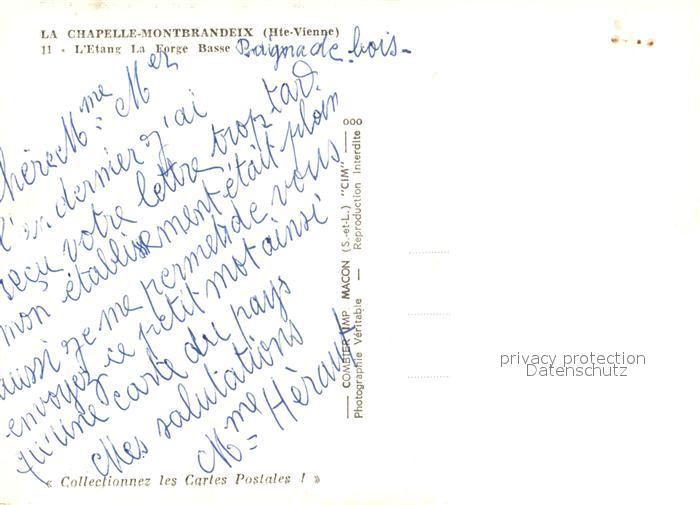 LA CHAPELLE-MONTBRANDEIX (Hte-Vienne)
11 - L'Etang La Forge Basse Baignade bois-
Chère Mme = Mer
l'an dernier j'ai
reçu votre lettre trop tard.
mon établissement était plein
aussi je me permets de vous
envoyez ce petit mot ainsi
qu'une carte du pays
Mes salutations
Mme = Héraut
« Collectionnez les Cartes Postales ! »
COMBIER IMP. MACON (S.-et-L.) "CIM" ooo
Photographie Véritable — Reproduction Interdite
privacy protection
Datenschutz